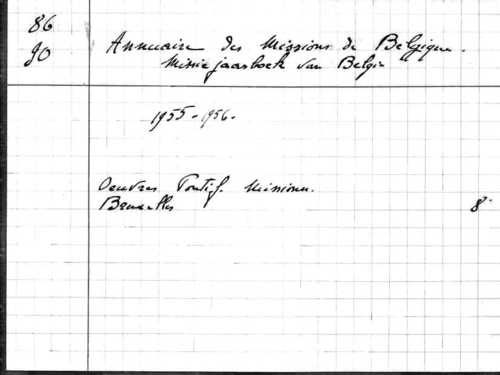 86
90
Annuaire des Missions de Belgique.
Missiejaarboek van Belgie
1955-1956.
Oeuvres Pontif. Missionn.
Bruxelles
8°